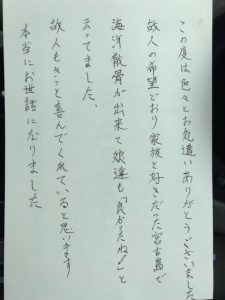 この度は色々とお気遣いありがとうございました
故人の希望どおり家族と好きだった宮古島で
海洋散骨が出来て娘達も「良かったね!」と
云ってました。
故人もきっと喜んでくれていると思います
本当にお世話になりました